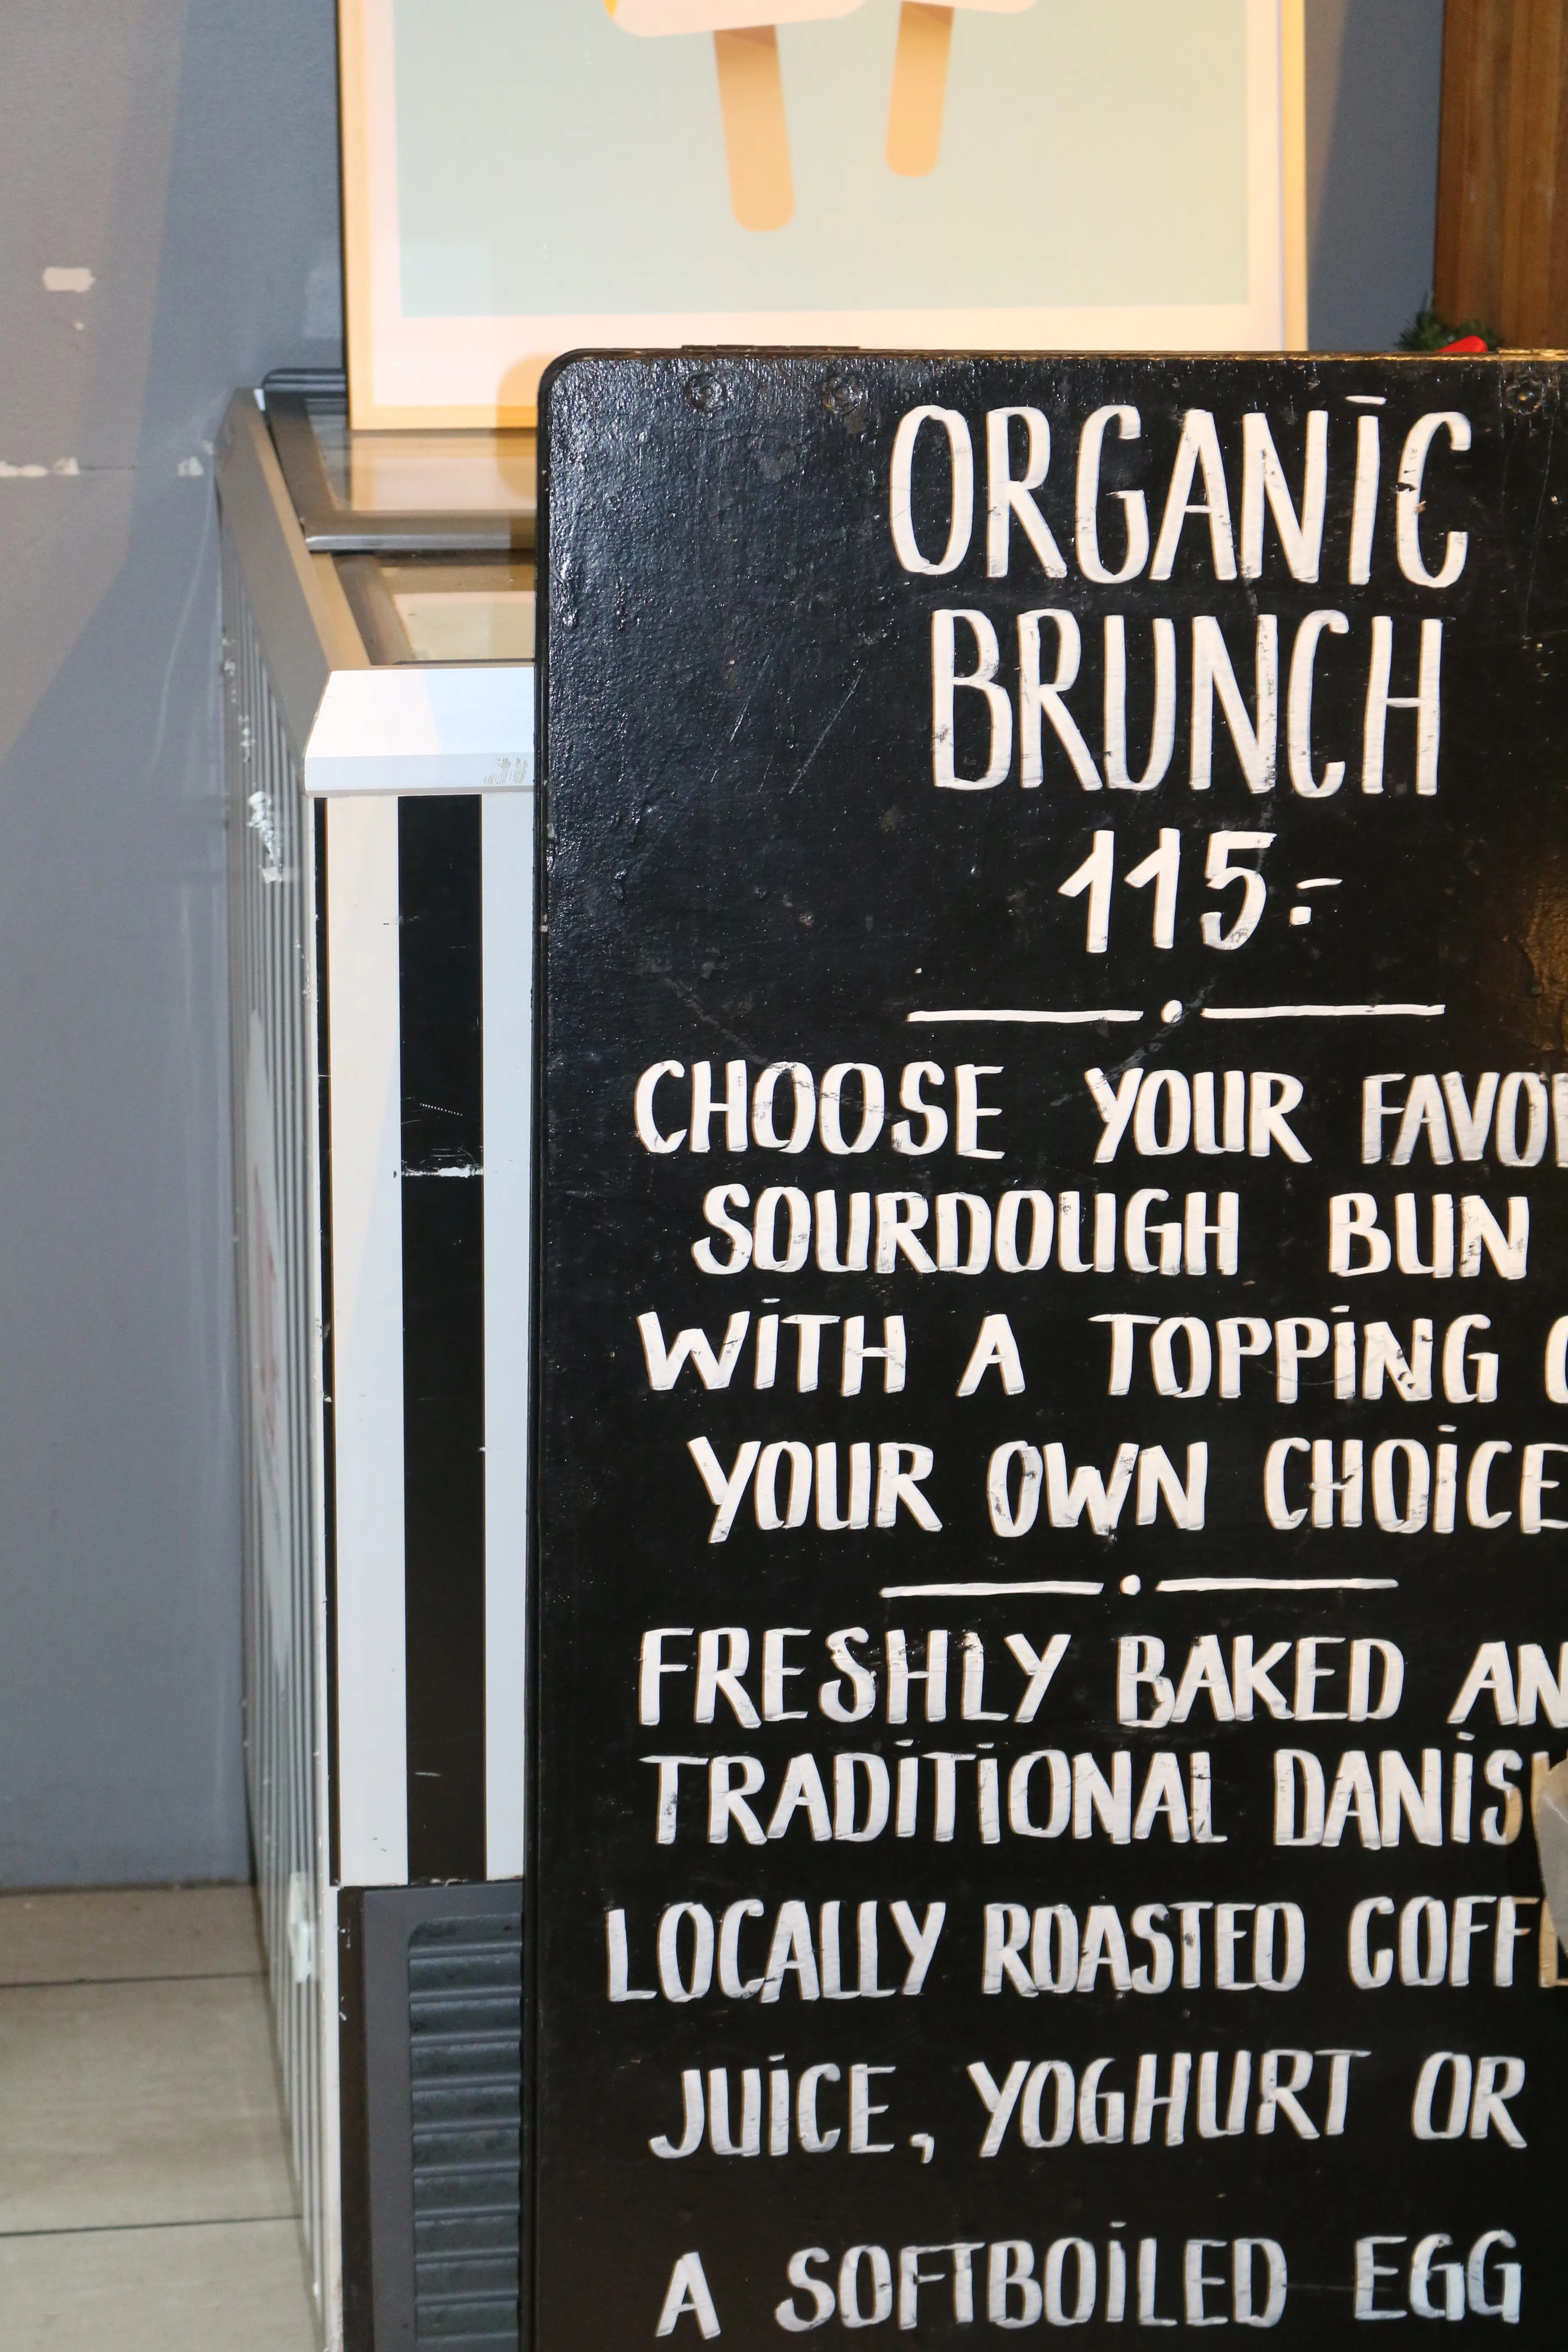 ORGANIC
BRUNCH
115:-
CHOOSE YOUR FAVO
SOURDOUGH BUN
WITH A TOPPING
YOUR OWN CHOICE
FRESHLY BAKED AN
TRADITIONAL DANIS
LOCALLY ROASTED COFF
JUICE, YOGHURT OR
A SOFTBOILED EGG